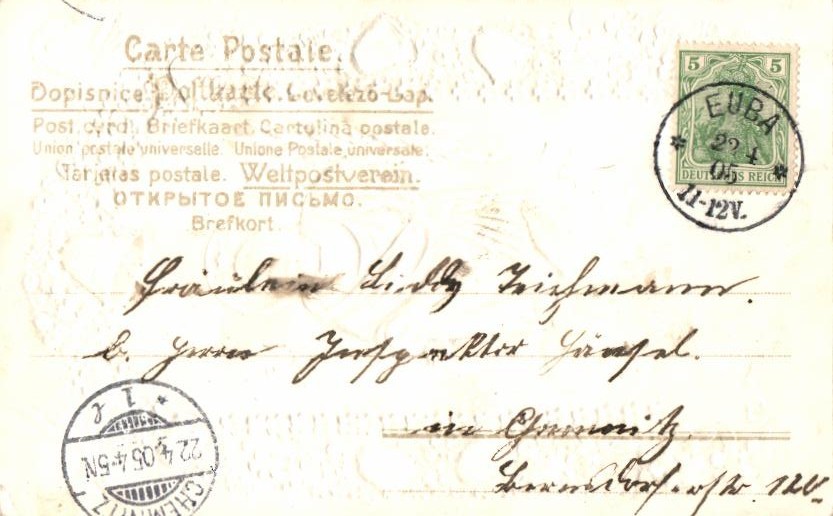 Carte Postale.
Dopisnice Postkarte Levelező-Lap.
Post card. Briefkaart. Cartolina postale.
Union postale universelle. Unione Postale universale.
Tarjetas postale. Weltpostverein.
ОТКРЫТОЕ ПИСЬМО.
Brefkort.
5 5
DEUTSCHES REICH
EUBA
22 4
05
11-12V.
Fräulein Liddy Teichmann.
b. Herrn Inspektor Hänsel.
in Chemnitz.
Bernsdorferstr. 120
CHEMNITZ
22.4.05.4-5N